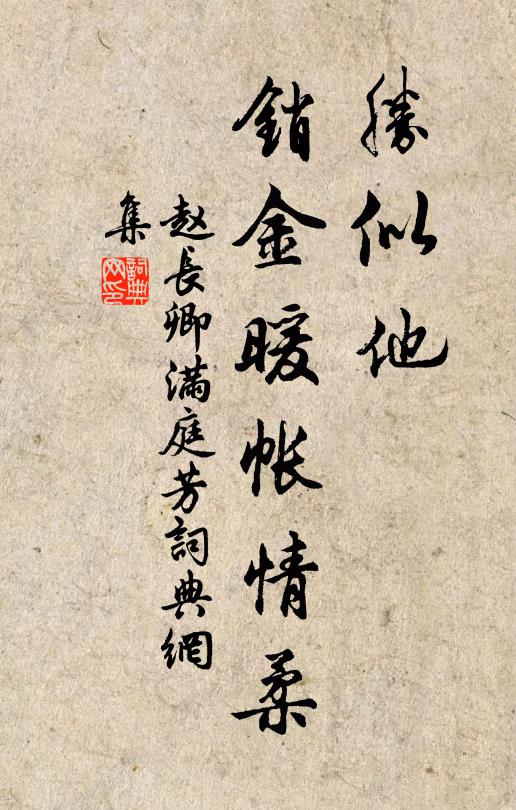 勝似他
銷金暖帳情柔
赵長卿滿庭芳詞典網
集
詞典網印